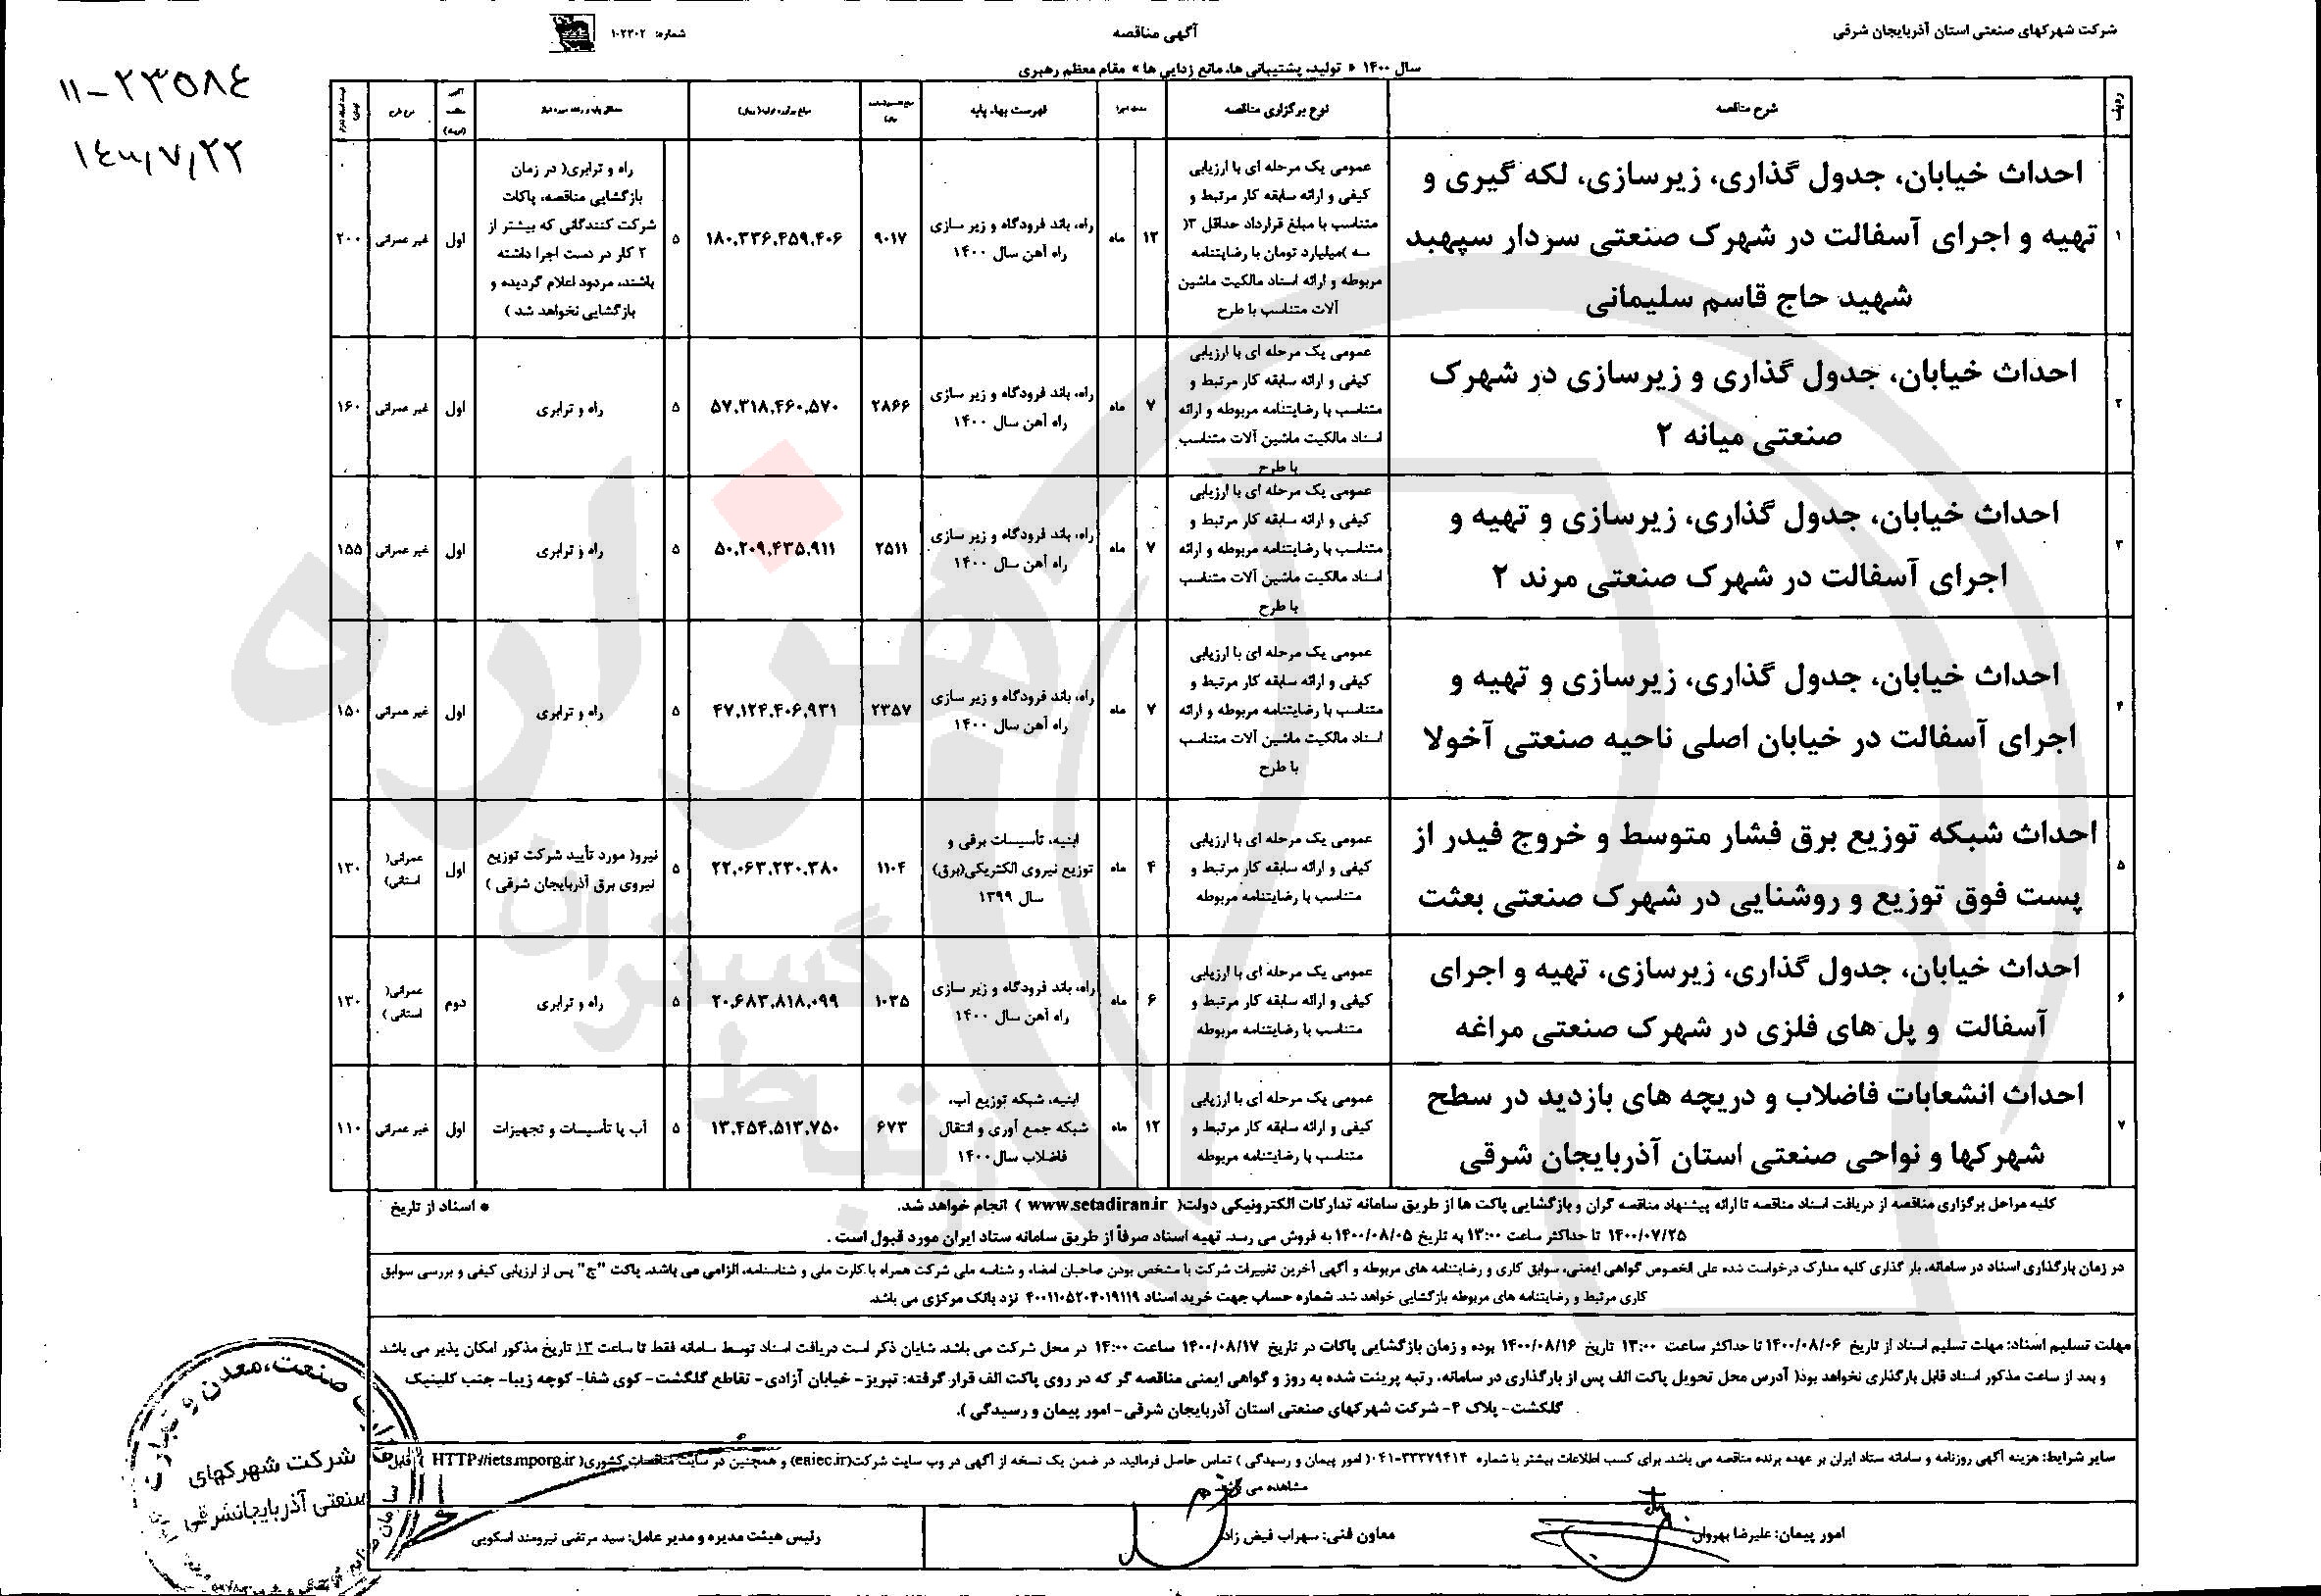 شرکت شهرکهای صنعتی استان آذربایجان شرقی
آگهی مناقصه
شماره: ۱۰۲۳۰۲
۱۱-۲۳۵۸۴
سال ۱۴۰۰ « تولید، پشتیبانی ها، مانع زدایی ها» مقام معظم رهبری
ردیف
شرح مناقصه
نوع برگزاری مناقصه
فهرست بهاء پایه
۱
احداث خیابان، جدول گذاری، زیرسازی، لکه گیری و
تهیه و اجرای آسفالت در شهرک صنعتی سردار سپهبد
شهید حاج قاسم سلیمانی
عمومی یک مرحله ای با ارزیابی
کیفی و ارائه سابقه کار مرتبط و
متناسب با مبلغ قرارداد حداقل ۳(
سه )میلیارد تومان با رضایتنامه
مربوطه و ارائه اسناد مالکیت ماشین
آلات متناسب با طرح
۱۲
ماه
راه، باند فرودگاه و زیر سازی
راه آهن سال ۱۴۰۰
۹۰۱۷
۱۸۰,۳۳۶,۴۵۹,۴۰۶
۵
راه و ترابری( در زمان
بازگشایی مناقصه، پاکات
شرکت کنندگانی که بیشتر از
۲ کار در دست اجرا داشته
باشند، مردود اعلام گردیده و
بازگشایی نخواهد شد )
اول
غیر عمرانی
۲۰۰
۲
احداث خیابان، جدول گذاری و زیرسازی در شهرک
صنعتی میانه ۲
عمومی یک مرحله ای با ارزیابی
کیفی و ارائه سابقه کار مرتبط و
متناسب با رضایتنامه مربوطه و ارائه
اسناد مالکیت ماشین آلات متناسب
با طرح
۷
ماه
راه، باند فرودگاه و زیر سازی
راه آهن سال ۱۴۰۰
۲۸۶۶
۵۷,۳۱۸,۴۶۰,۵۷۰
۵
راه و ترابری
اول
غیر عمرانی
۱۶۰
۳
احداث خیابان، جدول گذاری، زیرسازی و تهیه و
اجرای آسفالت در شهرک صنعتی مرند ۲
عمومی یک مرحله ای با ارزیابی
کیفی و ارائه سابقه کار مرتبط و
متناسب با رضایتنامه مربوطه و ارائه
اسناد مالکیت ماشین آلات متناسب
با طرح
۷
ماه
راه، باند فرودگاه و زیر سازی
راه آهن سال ۱۴۰۰
۲۵۱۱
۵۰,۲۰۹,۴۳۵,۹۱۱
۵
راه و ترابری
اول
غیر عمرانی
۱۵۵
۴
احداث خیابان، جدول گذاری، زیرسازی و تهیه و
اجرای آسفالت در خیابان اصلی ناحیه صنعتی آخولا
عمومی یک مرحله ای با ارزیابی
کیفی و ارائه سابقه کار مرتبط و
متناسب با رضایتنامه مربوطه و ارائه
اسناد مالکیت ماشین آلات متناسب
با طرح
۷
ماه
راه، باند فرودگاه و زیر سازی
راه آهن سال ۱۴۰۰
۲۳۵۷
۴۷,۱۲۴,۴۰۶,۹۳۱
۵
راه و ترابری
اول
غیر عمرانی
۱۵۰
۵
احداث شبکه توزیع برق فشار متوسط و خروج فیدر از
پست فوق توزیع و روشنایی در شهرک صنعتی بعثت
عمومی یک مرحله ای با ارزیابی
کیفی و ارائه سابقه کار مرتبط و
متناسب با رضایتنامه مربوطه
۴
ماه
ابنیه، تأسیسات برقی و
توزیع نیروی الکتریکی(برق)
سال ۱۳۹۹
۱۱۰۴
۲۲,۰۶۳,۲۳۰,۳۸۰
۵
نیرو( مورد تأیید شرکت توزیع
نیروی برق آذربایجان شرقی )
اول
عمرانی(
استانی)
۱۳۰
۶
احداث خیابان، جدول گذاری، زیرسازی، تهیه و اجرای
آسفالت و پل های فلزی در شهرک صنعتی مراغه
عمومی یک مرحله ای با ارزیابی
کیفی و ارائه سابقه کار مرتبط و
متناسب با رضایتنامه مربوطه
۶
ماه
راه، باند فرودگاه و زیر سازی
راه آهن سال ۱۴۰۰
۱۰۳۵
۲۰,۶۸۳,۸۱۸,۰۹۹
۵
راه و ترابری
دوم
عمرانی(
استانی )
۱۳۰
۷
احداث انشعابات فاضلاب و دریچه های بازدید در سطح
شهرکها و نواحی صنعتی استان آذربایجان شرقی
عمومی یک مرحله ای با ارزیابی
کیفی و ارائه سابقه کار مرتبط و
متناسب با رضایتنامه مربوطه
۱۲
ماه
ابنیه، شبکه توزیع آب،
شبکه جمع آوری و انتقال
فاضلاب سال۱۴۰۰
۶۷۳
۱۳,۴۵۴,۵۱۳,۷۵۰
۵
آب یا تأسیسات و تجهیزات
اول
غیر عمرانی
۱۱۰
کلیه مراحل برگزاری مناقصه از دریافت اسناد مناقصه تا ارائه پیشنهاد مناقصه گران و بازگشایی پاکت ها از طریق سامانه تدارکات الکترونیکی دولت( www.setadiran.ir ) انجام خواهد شد. * اسناد از تاریخ
۱۴۰۰/۰۷/۲۵ تا حداکثر ساعت ۱۳:۰۰ به تاریخ ۱۴۰۰/۰۸/۰۵ به فروش می رسد. تهیه اسناد صرفاً از طریق سامانه ستاد ایران مورد قبول است .
در زمان بارگذاری اسناد در سامانه، بار گذاری کلیه مدارک درخواست شده علی الخصوص گواهی ایمنی، سوابق کاری و رضایتنامه های مربوطه و آگهی آخرین تغییرات شرکت با مشخص بودن صاحبان امضاء و شناسه ملی شرکت همراه با کارت ملی و شناسنامه، الزامی می باشد. پاکت "ج" پس از ارزیابی کیفی و بررسی سوابق
کاری مرتبط و رضایتنامه های مربوطه بازگشایی خواهد شد. شماره حساب جهت خرید اسناد ۴۰۰۱۱۰۵۲۰۴۰۱۹۱۱۹ نزد بانک مرکزی می باشد.
مهلت تسلیم اسناد: مهلت تسلیم اسناد از تاریخ ۱۴۰۰/۰۸/۰۶ تا حداکثر ساعت ۱۳:۰۰ تاریخ ۱۴۰۰/۰۸/۱۶ بوده و زمان بازگشایی پاکات در تاریخ ۱۴۰۰/۰۸/۱۷ ساعت ۱۴:۰۰ در محل شرکت می باشد. شایان ذکر است دریافت اسناد توسط سامانه فقط تا ساعت ۱۳ تاریخ مذکور امکان پذیر می باشد
و بعد از ساعت مذکور اسناد قابل بارگذاری نخواهد بود( آدرس محل تحویل پاکت الف پس از بارگذاری در سامانه، رتبه پرینت شده به روز و گواهی ایمنی مناقصه گر که در روی پاکت الف قرار گرفته: تبریز- خیابان آزادی- تقاطع گلگشت- کوی شفا- کوچه زیبا- جنب کلینیک
گلگشت- پلاک ۴- شرکت شهرکهای صنعتی استان آذربایجان شرقی- امور پیمان و رسیدگی ).
سایر شرایط: هزینه آگهی روزنامه و سامانه ستاد ایران بر عهده برنده مناقصه می باشد. برای کسب اطلاعات بیشتر با شماره ۳۳۳۷۹۴۱۴-۰۴۱( امور پیمان و رسیدگی ) تماس حاصل فرمائید. در ضمن یک نسخه از آگهی در وب سایت شرکت(eaiec.ir) و همچنین در سایت مناقصات کشوری( HTTP://iets.mporg.ir ) قابل
مشاهده می
امور پیمان: علیرضا بهروان
معاون فنی: سهراب فیض زاده
رئیس هیئت مدیره و مدیر عامل: سید مرتضی نیرومند اسکویی
صنعت، معدن و تجارت
شرکت شهرکهای
صنعتی آذربایجانشرقی
هزاره
گستران